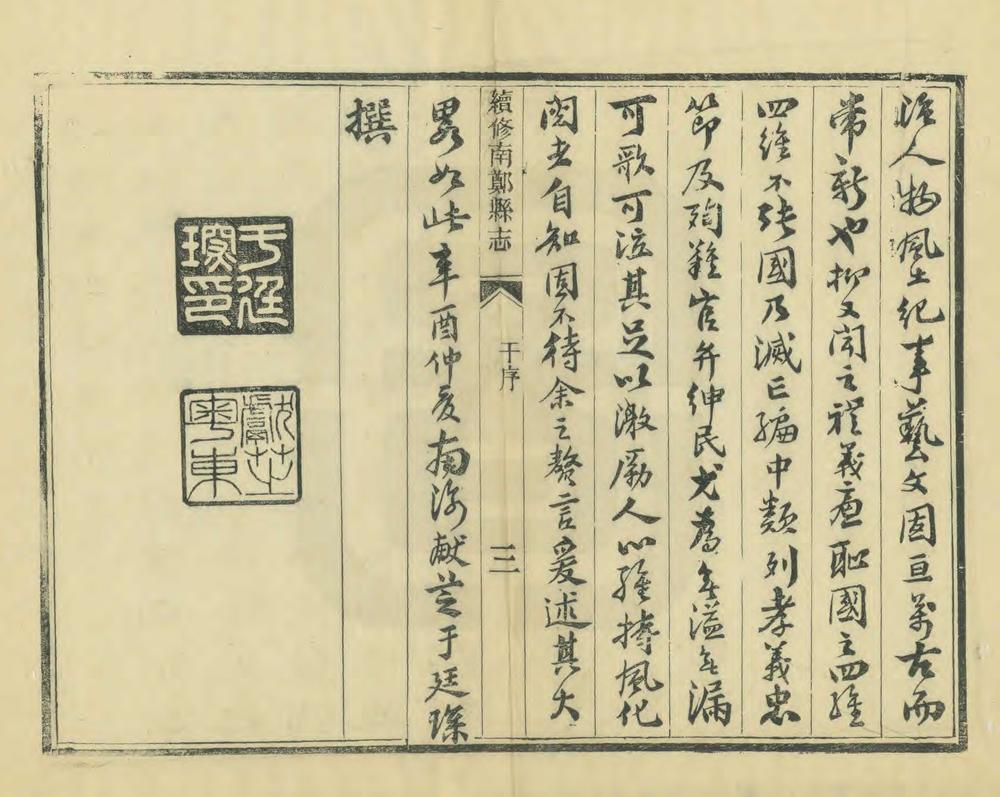 治人物風土紀事藝文固亘萬古而
常新也抑又聞之禮義廉恥國之四維
四維不張國乃滅亡編中類列孝義忠
節及殉難官弁紳民尤為無溢無漏
可歌可泣其足以激勵人心維持風化
閱者自知固不待余之贅言爰述其大
續修南鄭縣志
于序
三
畧如此辛酉仲夏南海獻芝于廷琛
撰
于廷琛印
獻芝粵東